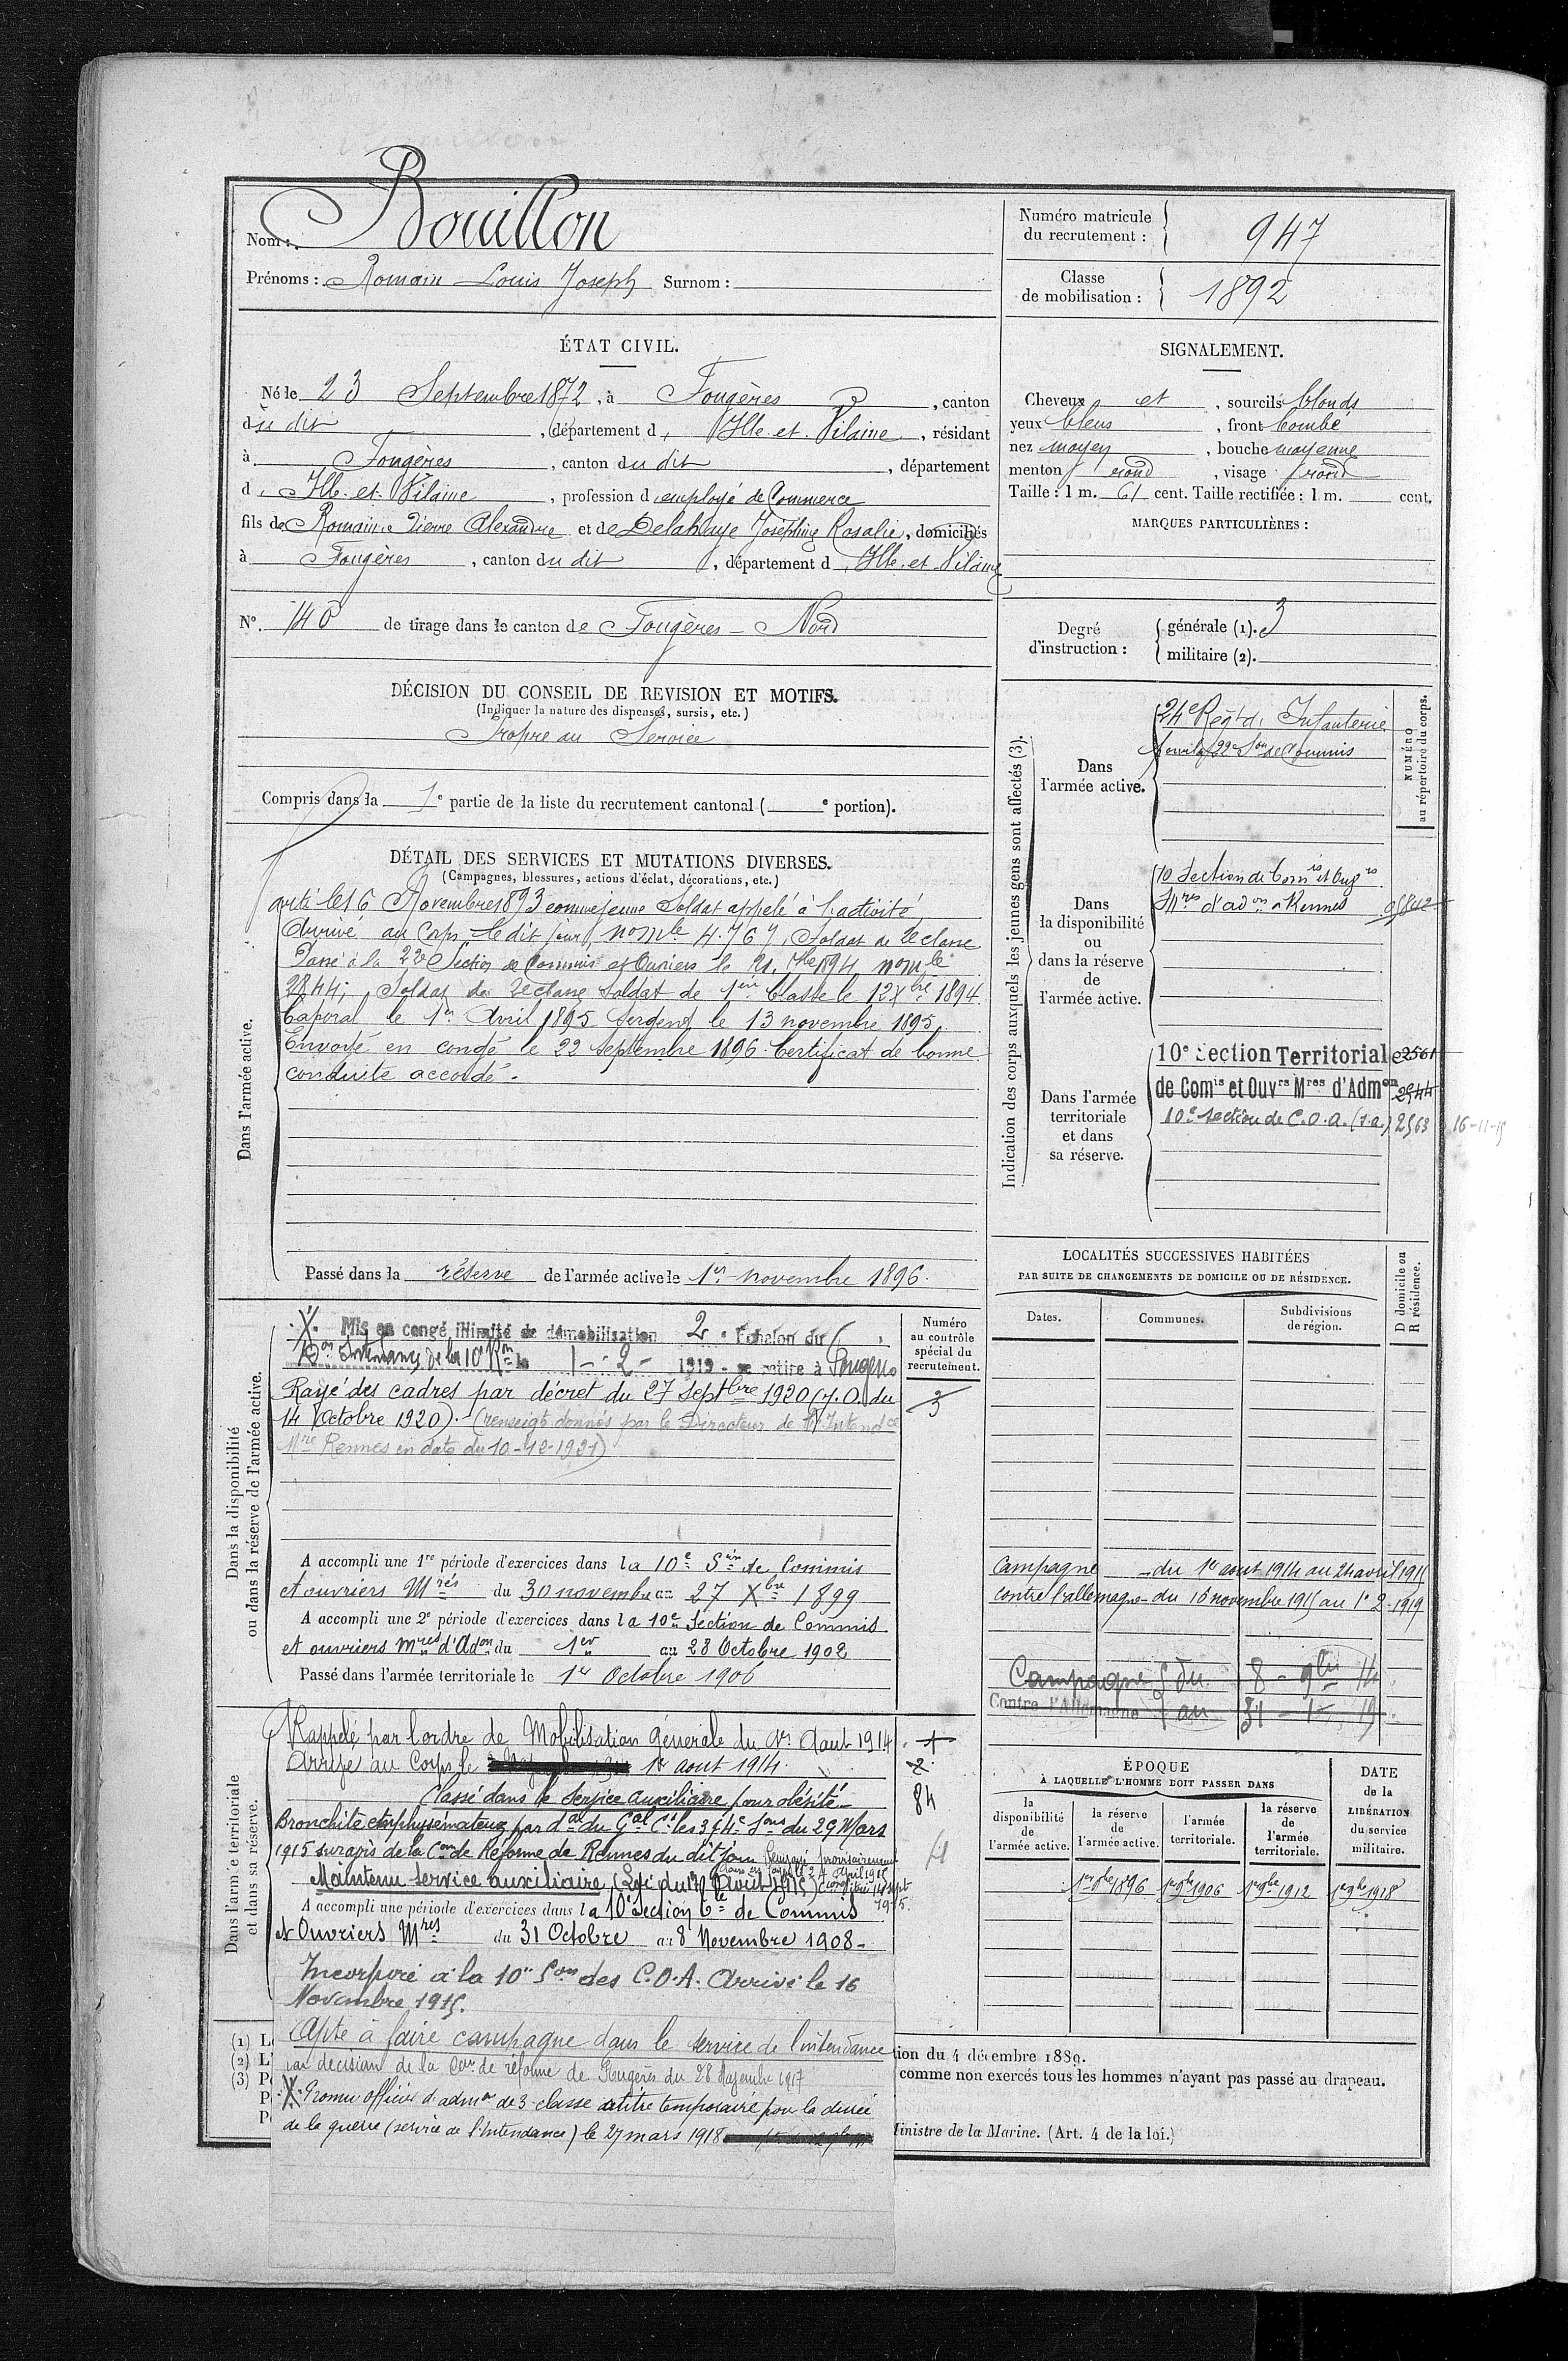 Nom : Bouillon
Prénoms : Romain Louis Joseph Surnom :
Numéro matricule du recrutement : 947
Classe de mobilisation : 1892
ÉTAT CIVIL.
Né le 23 Septembre 1872, à Fougères, canton
du dit, département d'Ille et Vilaine, résidant
à Fougères, canton du dit, département
d'Ille et Vilaine, profession d'employé de Commerce
fils de Romain Pierre Alexandre et de Delahaye Joséphine Rosalie, domiciliés
à Fougères, canton du dit, département d'Ille et Vilaine
N° 140 de tirage dans le canton de Fougères - Nord
SIGNALEMENT.
Cheveux et, sourcils blonds
yeux bleus, front bombé
nez moyen, bouche moyenne
menton rond, visage rond
Taille : 1 m. 61 cent. Taille rectifiée : 1 m. cent.
MARQUES PARTICULIÈRES :
Degré d'instruction : générale (1). 3
militaire (2).
DÉCISION DU CONSEIL DE REVISION ET MOTIFS.
(Indiquer la nature des dispenses, sursis, etc.)
Propre au Service
Compris dans la 1e partie de la liste du recrutement cantonal ( e portion).
DÉTAIL DES SERVICES ET MUTATIONS DIVERSES.
(Campagnes, blessures, actions d'éclat, décorations, etc.)
Dans l'armée active.
Parti le 16 Novembre 1893 comme jeune Soldat appelé à l'activité
Arrivé au Corps le dit jour, no mle 4.767, Soldat de 2e classe
Passé à la 22e Section de Commis et Ouvriers le 21. 1894 no mle
2844; Soldat de 2e classe Soldat de 1ère Classe le 12 Xbre 1894
Caporal le 1er Avril 1895 Sergent le 13 novembre 1895
Envoyé en congé le 22 Septembre 1896. Certificat de bonne
conduite accordé.
Passé dans la réserve de l'armée active le 1er novembre 1896.
Indication des corps auxquels les jeunes gens sont affectés (3).
NUMÉRO au répertoire du corps.
Dans l'armée active.
24e Régt d'Infanterie
22e Son de Commis
Dans la disponibilité ou dans la réserve de l'armée active.
10 Section de Comis et Ouvrs
Mres d'adon à Rennes
Dans l'armée territoriale et dans sa réserve.
10e Section Territoriale 2561
de Comis et Ouvrs Mres d'Admon 2544
10e Section de C.O.A. (s.a.) 2563 16-11-15
LOCALITÉS SUCCESSIVES HABITÉES
PAR SUITE DE CHANGEMENTS DE DOMICILE OU DE RÉSIDENCE.
Dates. Communes. Subdivisions de région. D domicile ou R résidence.
Campagne du 1er aout 1914 au 24 avril 1915
contre l'allemagne du 16 novembre 1915 au 1er 2-1919
Campagne du 8 - 9bre 14
Contre l'Allemagne au 31 - 1 - 19
Dans la disponibilité ou dans la réserve de l'armée active.
Numéro au contrôle spécial du recrutement.
X. Mis en congé illimité de démobilisation 2e Echelon du
Intendance de la 10e Ron le 1 - 2 - 1919 - se retire à Fougères
Rayé des cadres par décret du 27 Septbre 1920 (J.O. du
14 Octobre 1920). (renseigts donnés par le Directeur de l'Intendce
Mre Rennes en date du 10-12-1921)
3
A accompli une 1re période d'exercices dans la 10e Son de Commis
et ouvriers Mres du 30 novembre au 27 Xbre 1899
A accompli une 2e période d'exercices dans la 10e Section de Commis
et ouvriers mres d'Adon du 1er au 28 Octobre 1902
Passé dans l'armée territoriale le 1er Octobre 1906
Dans l'armée territoriale et dans sa réserve.
Rappelé par l'ordre de Mobilisation Générale du 1er Aout 1914
Arrivé au Corps le 1er aout 1914.
Classé dans le service auxiliaire pour obésité
Bronchite emphysémateuse par don du Gal Ct les 3e & 4e Sons du 29 Mars
1915 sur avis de la Con de Réforme de Rennes du dit jour Renvoyé provisoirement
dans ses foyers le 24 Avril 1915
Maintenu service auxiliaire (Loi du 17 Aout 1915)
84
4
A accompli une période d'exercices dans la 10e Section Tle de Commis
et Ouvriers Mres du 31 Octobre au 8 Novembre 1908
Incorporé à la 10e Son des C.O.A. Arrivé le 16
Novembre 1915.
Apte à faire campagne dans le service de l'intendance
par décision de la Con de réforme de Fougères du 28 1917
X. Promu officier d'admon de 3e classe à titre temporaire pour la durée
de la guerre (service de l'Intendance) le 27 mars 1918
ÉPOQUE
À LAQUELLE L'HOMME DOIT PASSER DANS
la disponibilité de l'armée active. la réserve de l'armée active. l'armée territoriale. la réserve de l'armée territoriale.
DATE de la LIBÉRATION du service militaire.
1er 9bre 1896 1er 9bre 1906 1er 9bre 1912 1er 9bre 1918
(1) L
(2) L'
(3) P
P
P
tion du 4 décembre 1889.
comme non exercés tous les hommes n'ayant pas passé au drapeau.
Ministre de la Marine. (Art. 4 de la loi.)